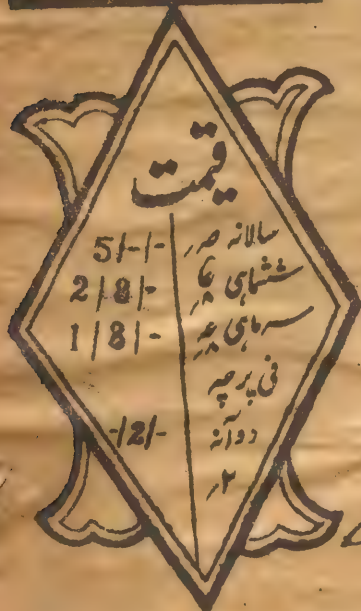 قیمت
سالانہ صہ 5/-/-
ششماہی 2/8/-
سہ ماہی عہ 1/8/-
فی پرچہ
دو آنہ -/2/-
۲؍